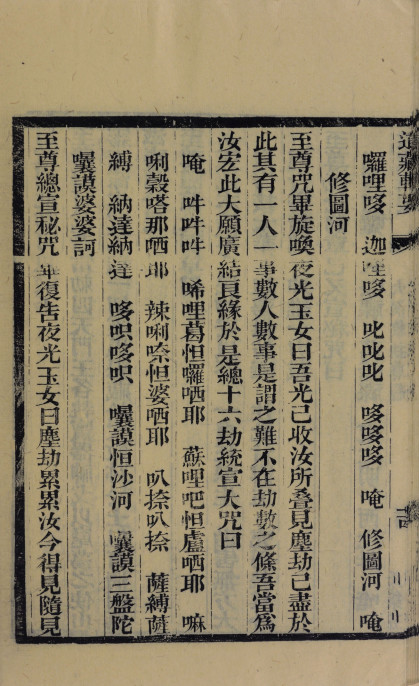 道藏輯要
囉哩哆 迦哩哆 叱叱叱 哆哆哆 唵 修圖河 唵
修圖河
至尊咒畢旋喚夜光玉女曰吾光已收汝所叠見塵劫已盡於
此其有一人一事數人數事是謂之難不在劫數之條吾當為
汝宏此大願廣結良緣於是總十六劫統宣大咒曰
唵 吽吽吽 唏哩葛怛囉哂耶 蘇哩吧怛盧哂耶 嘛
唎穀嗒那哂耶 辣唎唋怛婆哂耶 叺捺叺捺 薩縛薩
縛 納達納達 哆呮哆呮 囉謨恒沙河 囉謨三盤陀
囉謨婆婆訶
至尊總宣秘咒畢復告夜光玉女曰塵劫累累汝今得見隨見